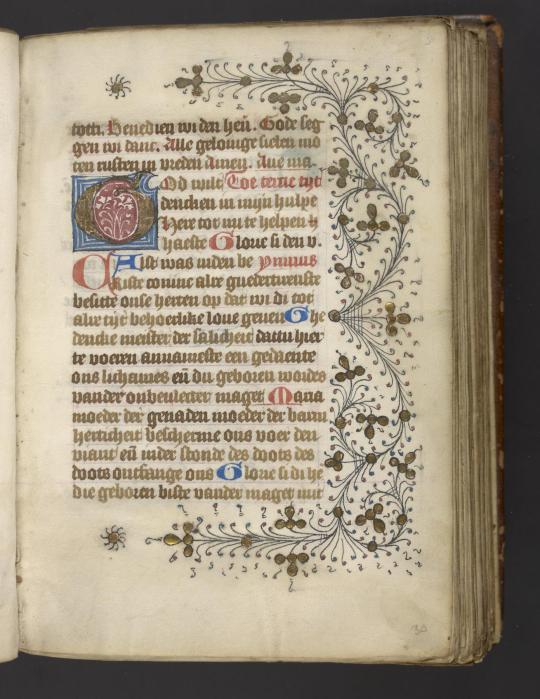 toch. Benedien wi den heñ. Gode seg
gen wi danc. Alle gelouige sielen mo
ten rusten in vreden Amen. Aue ma-
God wilt Toe tercie tijt
dencken in mijn hulpe
Here tot mi te helpen
haeste Glorie si den v.
Alst was inden be ymnus
Criste coninc alre guedertierenste
besitte onse herten op dat wi di tot
alre tijt behoerlike loue geuen Ghe
dencke meister der salicheit dattu hier
te voeren annameste een gedaente
ons lichames eñ du geboren wordes
vander onbeulecter maget Maria
moeder der genaden moeder der barm
herticheit bescherme ons voer den
viant eñ inder stonde des doots des
doots ontfange ons Glorie si di he
die geboren biste vander maget mit
30